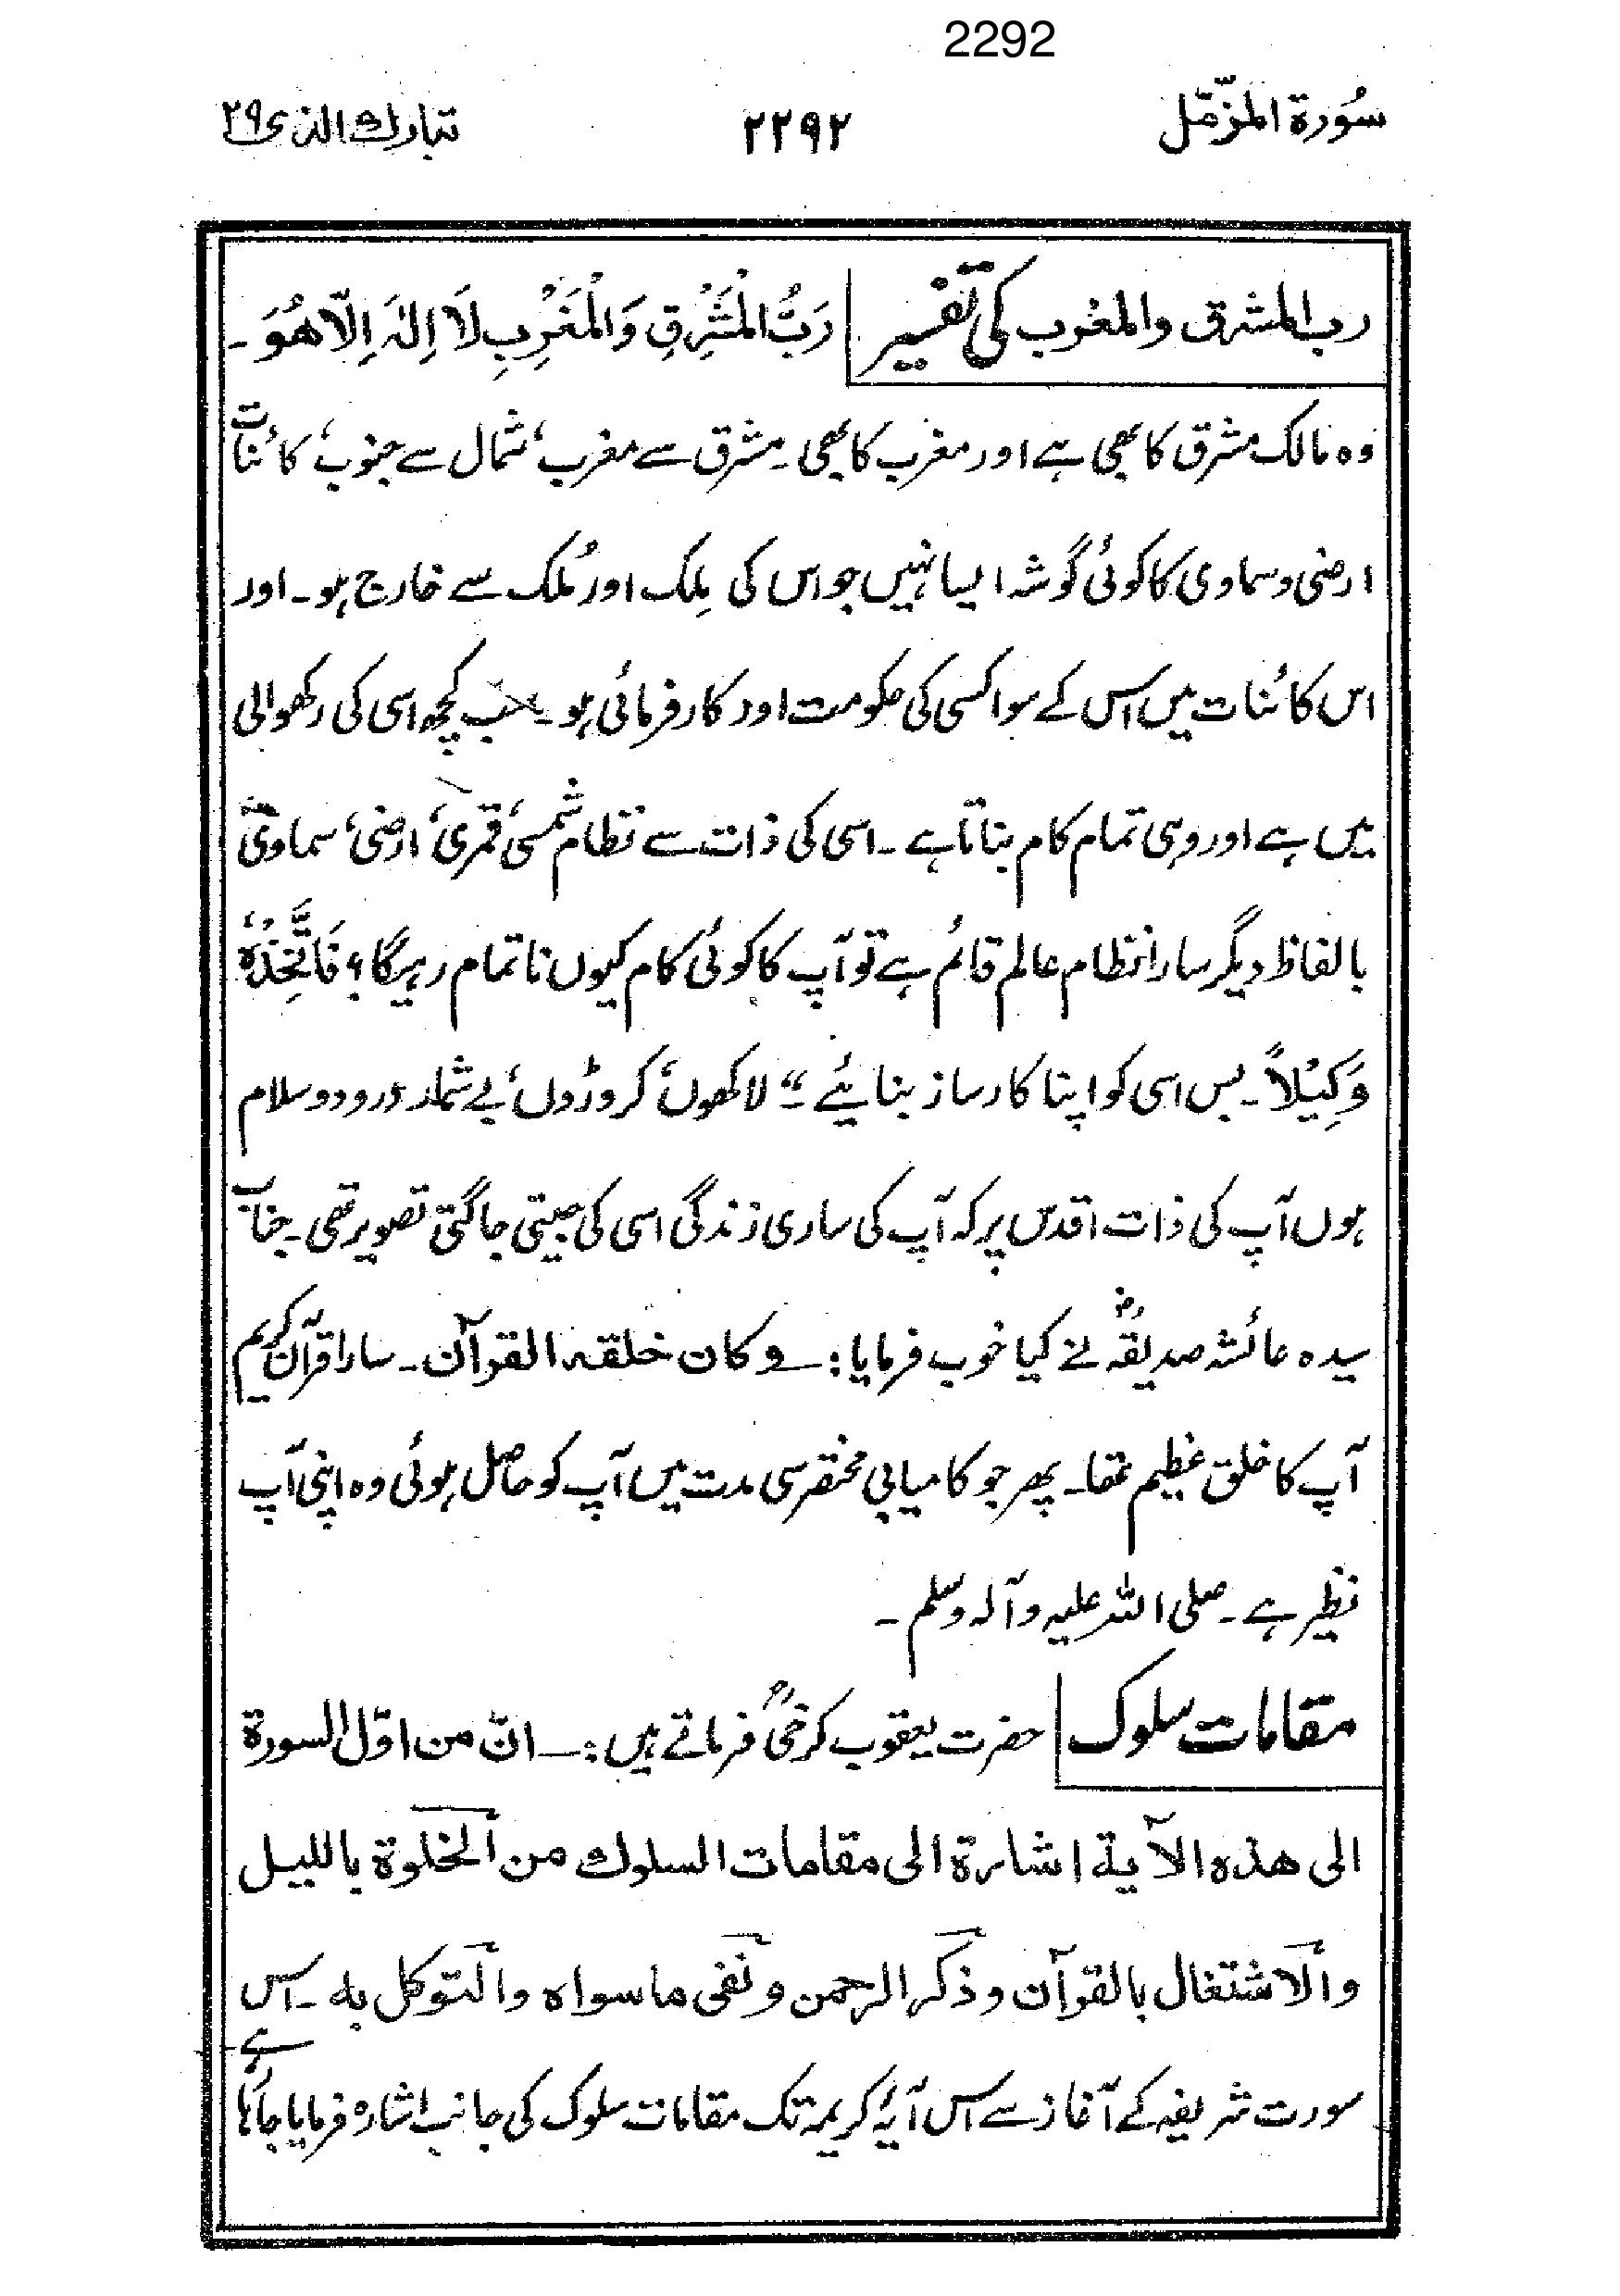 2292
سُورۃ المزّمّل ۲۲۹۲ تبارك الذی ۲۹
رب المشرق والمغرب کی تفسیر رَبُّ الْمَشْرِقِ وَالْمَغْرِبِ لَا اِلٰہَ اِلَّا ھُوَ۔
وہ مالک مشرق کا بھی ہے اور مغرب کا بھی۔ مشرق سے مغرب، شمال سے جنوب، کائنات
ارضی و سماوی کا کوئی گوشہ ایسا نہیں جو اس کی مِلک اور مُلک سے خارج ہو۔ اور
اس کائنات میں اس کے سوا کسی کی حکومت اور کارفرمائی ہو۔ سب کچھ اسی کی رکھوالی
میں ہے اور وہی تمام کام بناتا ہے۔ اسی کی ذات سے نظام شمسی، قمری، ارضی، سماوی
بالفاظ دیگر سارا نظام عالم قائم ہے تو آپ کا کوئی کام کیوں ناتمام رہیگا؟ فَاتَّخِذْہُ
وَکِیْلاً۔ بس اسی کو اپنا کارساز بنایئے۔“ لاکھوں، کروڑوں، بے شمار درود و سلام
ہوں آپ کی ذات اقدس پر کہ آپ کی ساری زندگی اسی کی جیتی جاگتی تصویر تھی۔ جناب
سیدہ عائشہ صدیقہؓ نے کیا خوب فرمایا:۔ وکان خلقہ القرآن۔ سارا قرآن کریم
آپ کا خلق عظیم تھا۔ پھر جو کامیابی مختصر سی مدت میں آپ کو حاصل ہوئی وہ اپنی آپ
نظیر ہے۔ صلی اللہ علیہ وآلہ وسلم۔
مقامات سلوک حضرت یعقوب کرخیؒ فرماتے ہیں:۔ انّ من اوّل السورۃ
الی ھذہ الآیۃ اشارۃ الی مقامات السلوك من الخلوۃ باللیل
والاشتغال بالقرآن وذکر الرحمن ونفی ما سواہ والتوکل بہ۔ اس
سورت شریفہ کے آغاز سے اس آیۂ کریمہ تک مقامات سلوک کی جانب اشارہ فرمایا جا رہا ہے